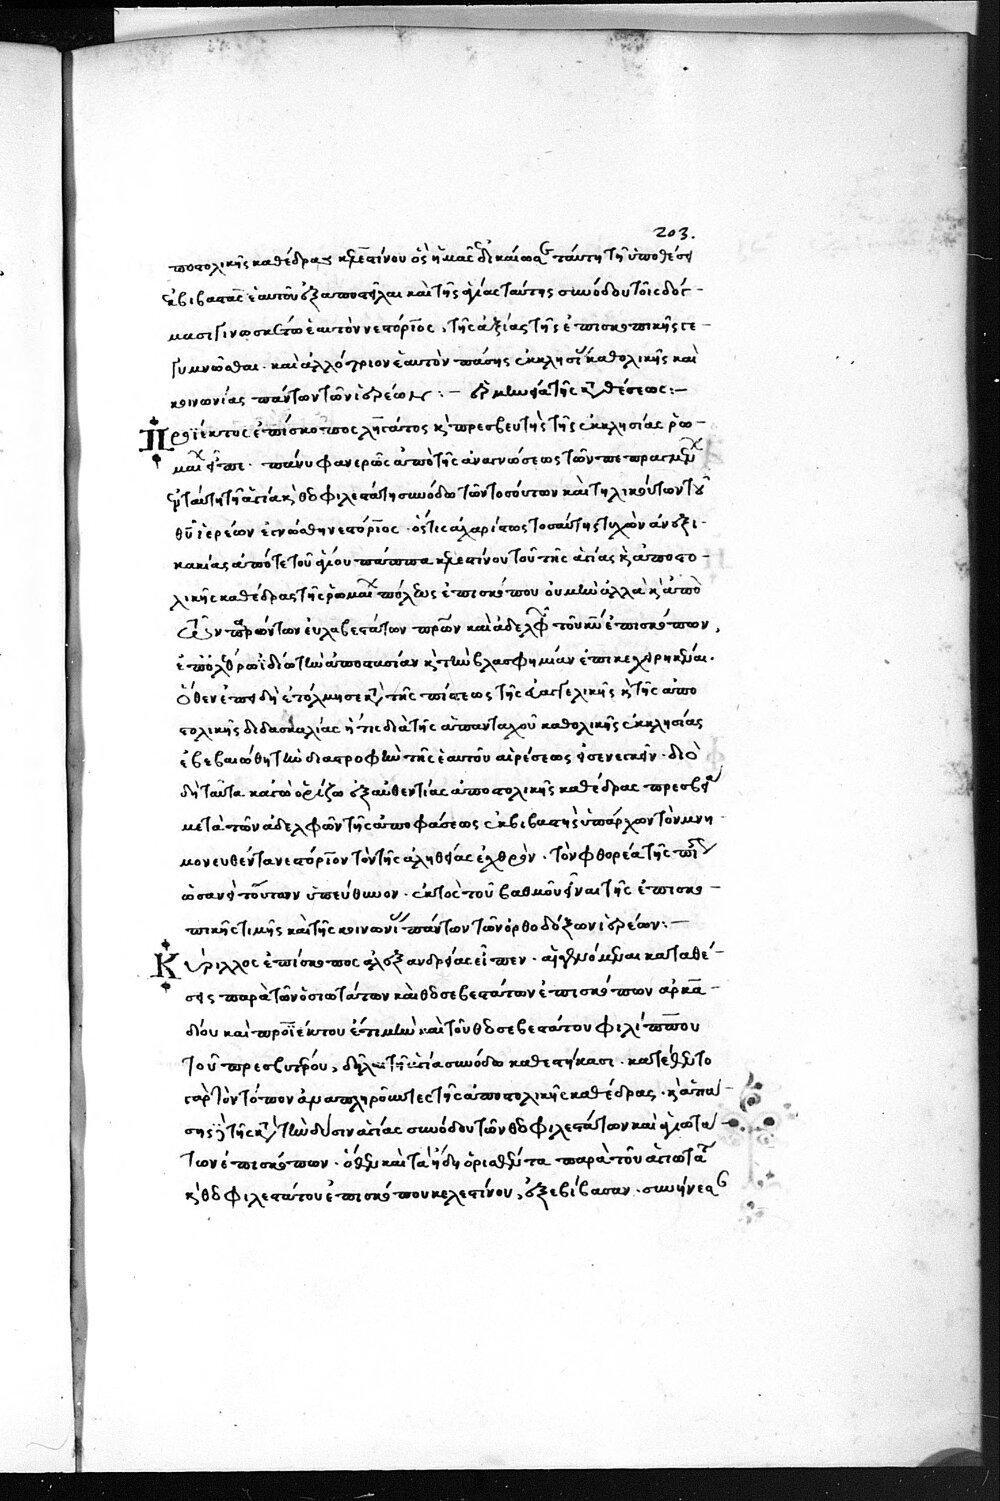 203.
ποστολικῆς καθέδρας κελεστίνου ὃς ἡμᾶς δικαίως ταύτη τῆ ὑποθέσει
ἐκβιβαστὰς ἑαυτοῦ ἐξαποστεῖλαι καὶ τῆς ἁγίας ταύτης συνόδου τοῖς δόγ-
μασι γινωσκέτω ἑαυτὸν νεστόριος, τῆς ἀξίας τῆς ἐπισκοπικῆς γε-
γυμνῶσθαι· καὶ ἀλλότριον ἑαυτὸν πάσης ἐκκλησίας καθολικῆς καὶ
κοινωνίας πάντων τῶν ἱερέων :– ἑρμηνεία τῆς καταθέσεως:–
Προΐεκτος ἐπίσκοπος λῃγάτος κ πρεσβευτὴς τῆς ἐκκλησίας ῥω-
μαίων εἶπε· πάνυ φανερῶς ἀπὸ τῆς ἀναγνώσεως τῶν πεπραγμένων
ἐν ταύτη τῆ ἁγία κ θεοφιλεστάτη συνόδω τῶν τοσούτων καὶ τηλικούτων τοῦ
θῦ ἱερέων ἐγνώσθη νεστόριος· ὅστις ἀχαρίστως τοσαύτης τυχὼν ἀνεξι-
κακίας ἀπό τε τοῦ ἁγίου πάππα κελεστίνου τοῦ τῆς ἁγίας κ ἀποστο-
λικῆς καθέδρας τῆς ῥωμαίων πόλεως ἐπισκόπου οὐ μὴν ἀλλὰ κ ἀπὸ
τῶν παρόντων εὐλαβεστάτων πρῶν καὶ ἀδελφῶν τοῦ κῦ ἐπισκόπων,
τὴν ἀποστασίαν κ τὴν βλασφημίαν ἐπικεχείρηκεν.
ὅθεν ἐπειδὴ ἐτόλμησε κατὰ τῆς πίστεως τῆς εὐαγγελικῆς κ τῆς ἀπο
στολικῆς διδασκαλίας ἥτις διὰ τῆς ἁπανταχοῦ καθολικῆς ἐκκλησίας
ἐβεβαιώθη τὴν διαστροφὴν τῆς ἑαυτοῦ αἱρέσεως εἰσενεγκεῖν· διὸ
δὴ ταῦτα κἀγὼ ὁρίζω ἐξ αὐθεντίας ἀποστολικῆς καθέδρας πρεσβεία
μετὰ τῶν ἀδελφῶν τῆς ἀποφάσεως ἐκβιβαστὴς ὑπάρχων τὸν μνη-
μονευθέντα νεστόριον τὸν τῆς ἀληθείας ἐχθρὸν· τὸν φθορέα τῆς πίστεως
ὡσανεὶ τούτων ὑπεύθυνον· ἐκτὸς τοῦ βαθμοῦ εἶναι τῆς ἐπισκο-
πικῆς τιμῆς καὶ τῆς κοινωνίας πάντων τῶν ὀρθοδόξων ἱερέων:–
Κύριλλος ἐπίσκοπος ἀλεξανδρείας εἶπεν· αἱ γενόμεναι καταθέ-
σεις παρὰ τῶν ὁσιωτάτων καὶ θεοσεβεστάτων ἐπισκόπων ἀρκα-
δίου καὶ προϊέκτου ἔτι μὴν καὶ τοῦ θεοσεβεστάτου φιλίππου
τοῦ πρεσβυτέρου, δῆλαι τῆ ἁγία συνόδω καθεστήκασι· κατέθεντο
γὰρ τὸν τόπον ἀναπληροῦντες τῆς ἀποστολικῆς καθέδρας· κ ἁπα-
σης τῆς κατὰ τὴν δύσιν ἁγίας συνόδου τῶν θεοφιλεστάτων καὶ ἁγιωτά-
των ἐπισκόπων· ὅθεν καὶ τὰ ἤδη ὁρισθέντα παρὰ τοῦ ἁγιωτάτου
κ θεοφιλεστάτου ἐπισκόπου κελεστίνου, ἐξεβίβασαν· συνήνεσαν